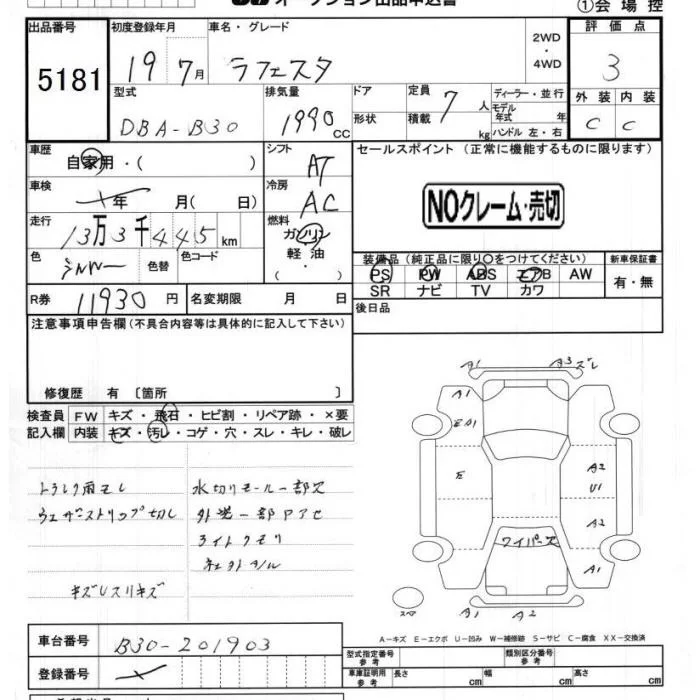 オークション出品申込書 ①会場控
出品番号 初度登録年月 車名・グレード 2WD ・ 4WD 評価点
5181 19年 7月 ラフェスタ 3
型式 排気量 ドア 形状 定員 7人 積載 kg ディーラー・並行 モデル年式 年 ハンドル 左・右 外装 内装
DBA-B30 1990cc C C
車歴 自家用・( ) シフト AT セールスポイント(正常に機能するものに限ります)
車検 年 月( 日) 冷房 AC NOクレーム・売切
走行 13万3千445km 燃料 ガソリン 軽油・( )
色 シルバー 色替 色コード 装備品(純正品に限り○をつけてください) 新車保証書
PS PW ABS エアB AW 有・無
SR ナビ TV カワ
R券 11930円 名変期限 月 日 後日品
注意事項申告欄(不具合内容等は具体的に記入して下さい)
修復歴 有〔箇所 〕
検査員 FW キズ・飛石・ヒビ割・リペア跡・×要
記入欄 内装 キズ・汚レ・コゲ・穴・スレ・キレ・破レ
トランク雨モレ 水切りモール一部欠
ウェザーストリップ切レ 外装一部アセ
ライトクモリ
キズUスリキズ
A1 A3 ズレ
A1
E
A2
U1
A2
ワイパーズ
A1
スペア A1 A2
A-キズ E-エクボ U-凹み W-補修跡 S-サビ C-腐食 XX-交換済
車台番号 B30-201903
登録番号
型式指定番号 参考 類別区分番号 参考
車庫証明用 参考 長さ cm 幅 cm 高さ cm